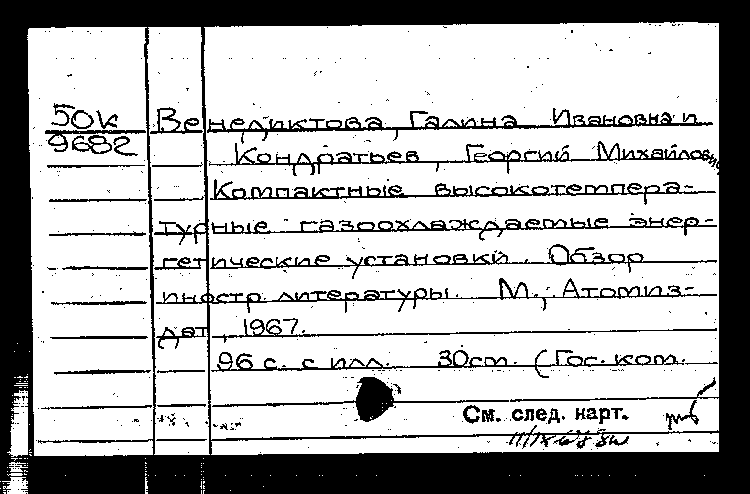 50к Венедиктова, Галина Ивановна и
9682 Кондратьев, Георгий Михайлович
Компактные высокотемпера-
турные газоохлаждаемые энер-
гетические установки. Обзор
иностр. литературы. М., Атомиз-
дат, 1967.
96 с. с илл. 30см. (Гос. ком.
См. след. карт.